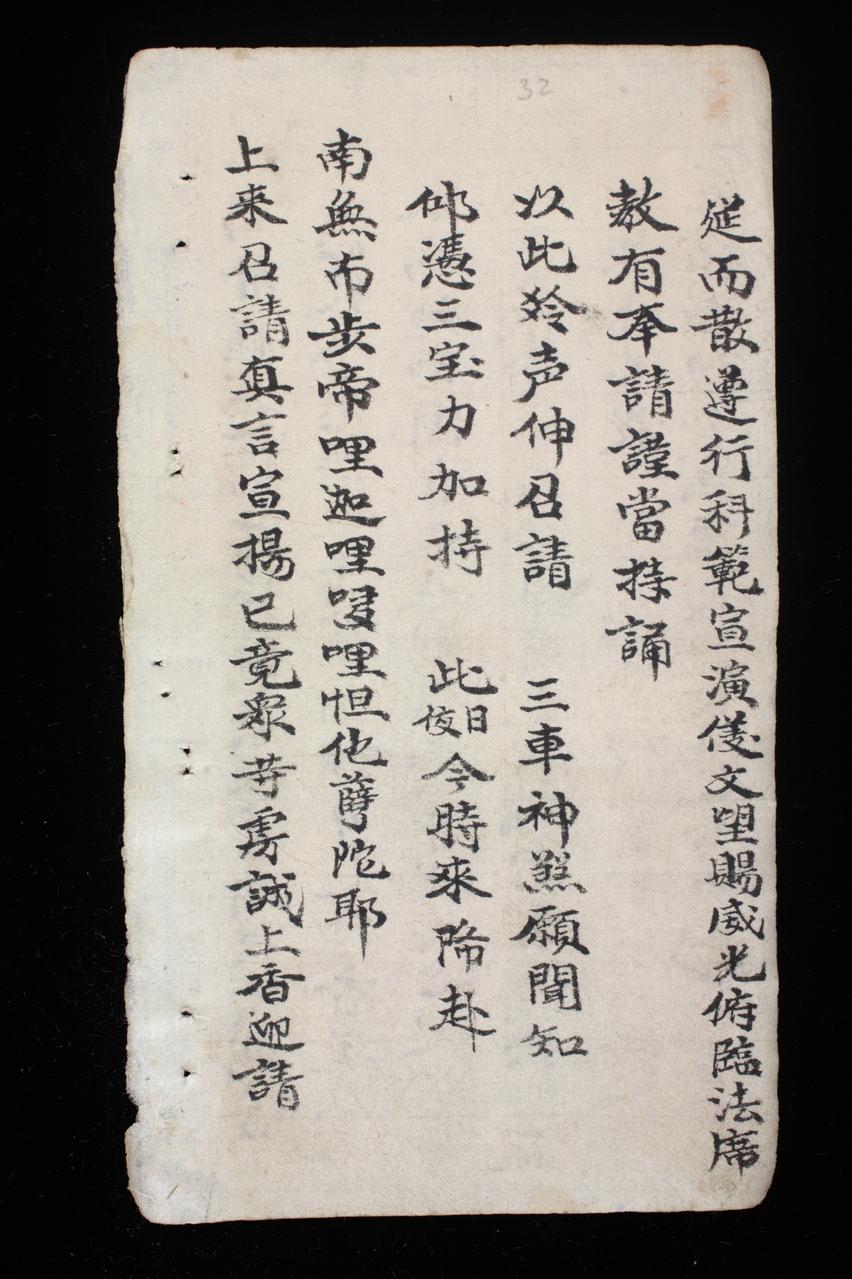 32
从而散遵行科範宣演儀文望賜威光俯臨法席
教有奉請謹當持誦
以此鈴声伸召請 三車神煞願聞知
仰憑三宝力加持 此日夜今時來降赴
南無布步帝哩迦哩哆哩怛他孽陀耶
上来召請真言宣揚已竟眾等虔誠上香迎請